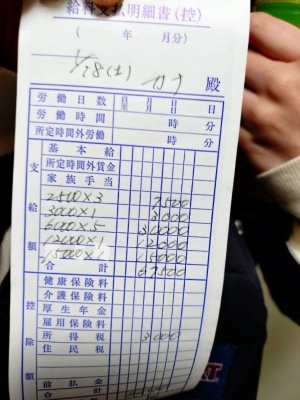 給料支払明細書(控)
( 年 月分)
1/18(土) カナ 殿
労働日数 自 月 日 至 月 日 日
労働時間 時 分
所定時間外労働 時 分
支給額
基本給
所定時間外賃金
家族手当
2500×3 7,500
3000×1 3,000
6000×5 30,000
12000×1 12,000
15000×1 15,000
合計 67,500
控除額
健康保険料
介護保険料
厚生年金
雇用保険料
所得税 3,000
住民税
前払金